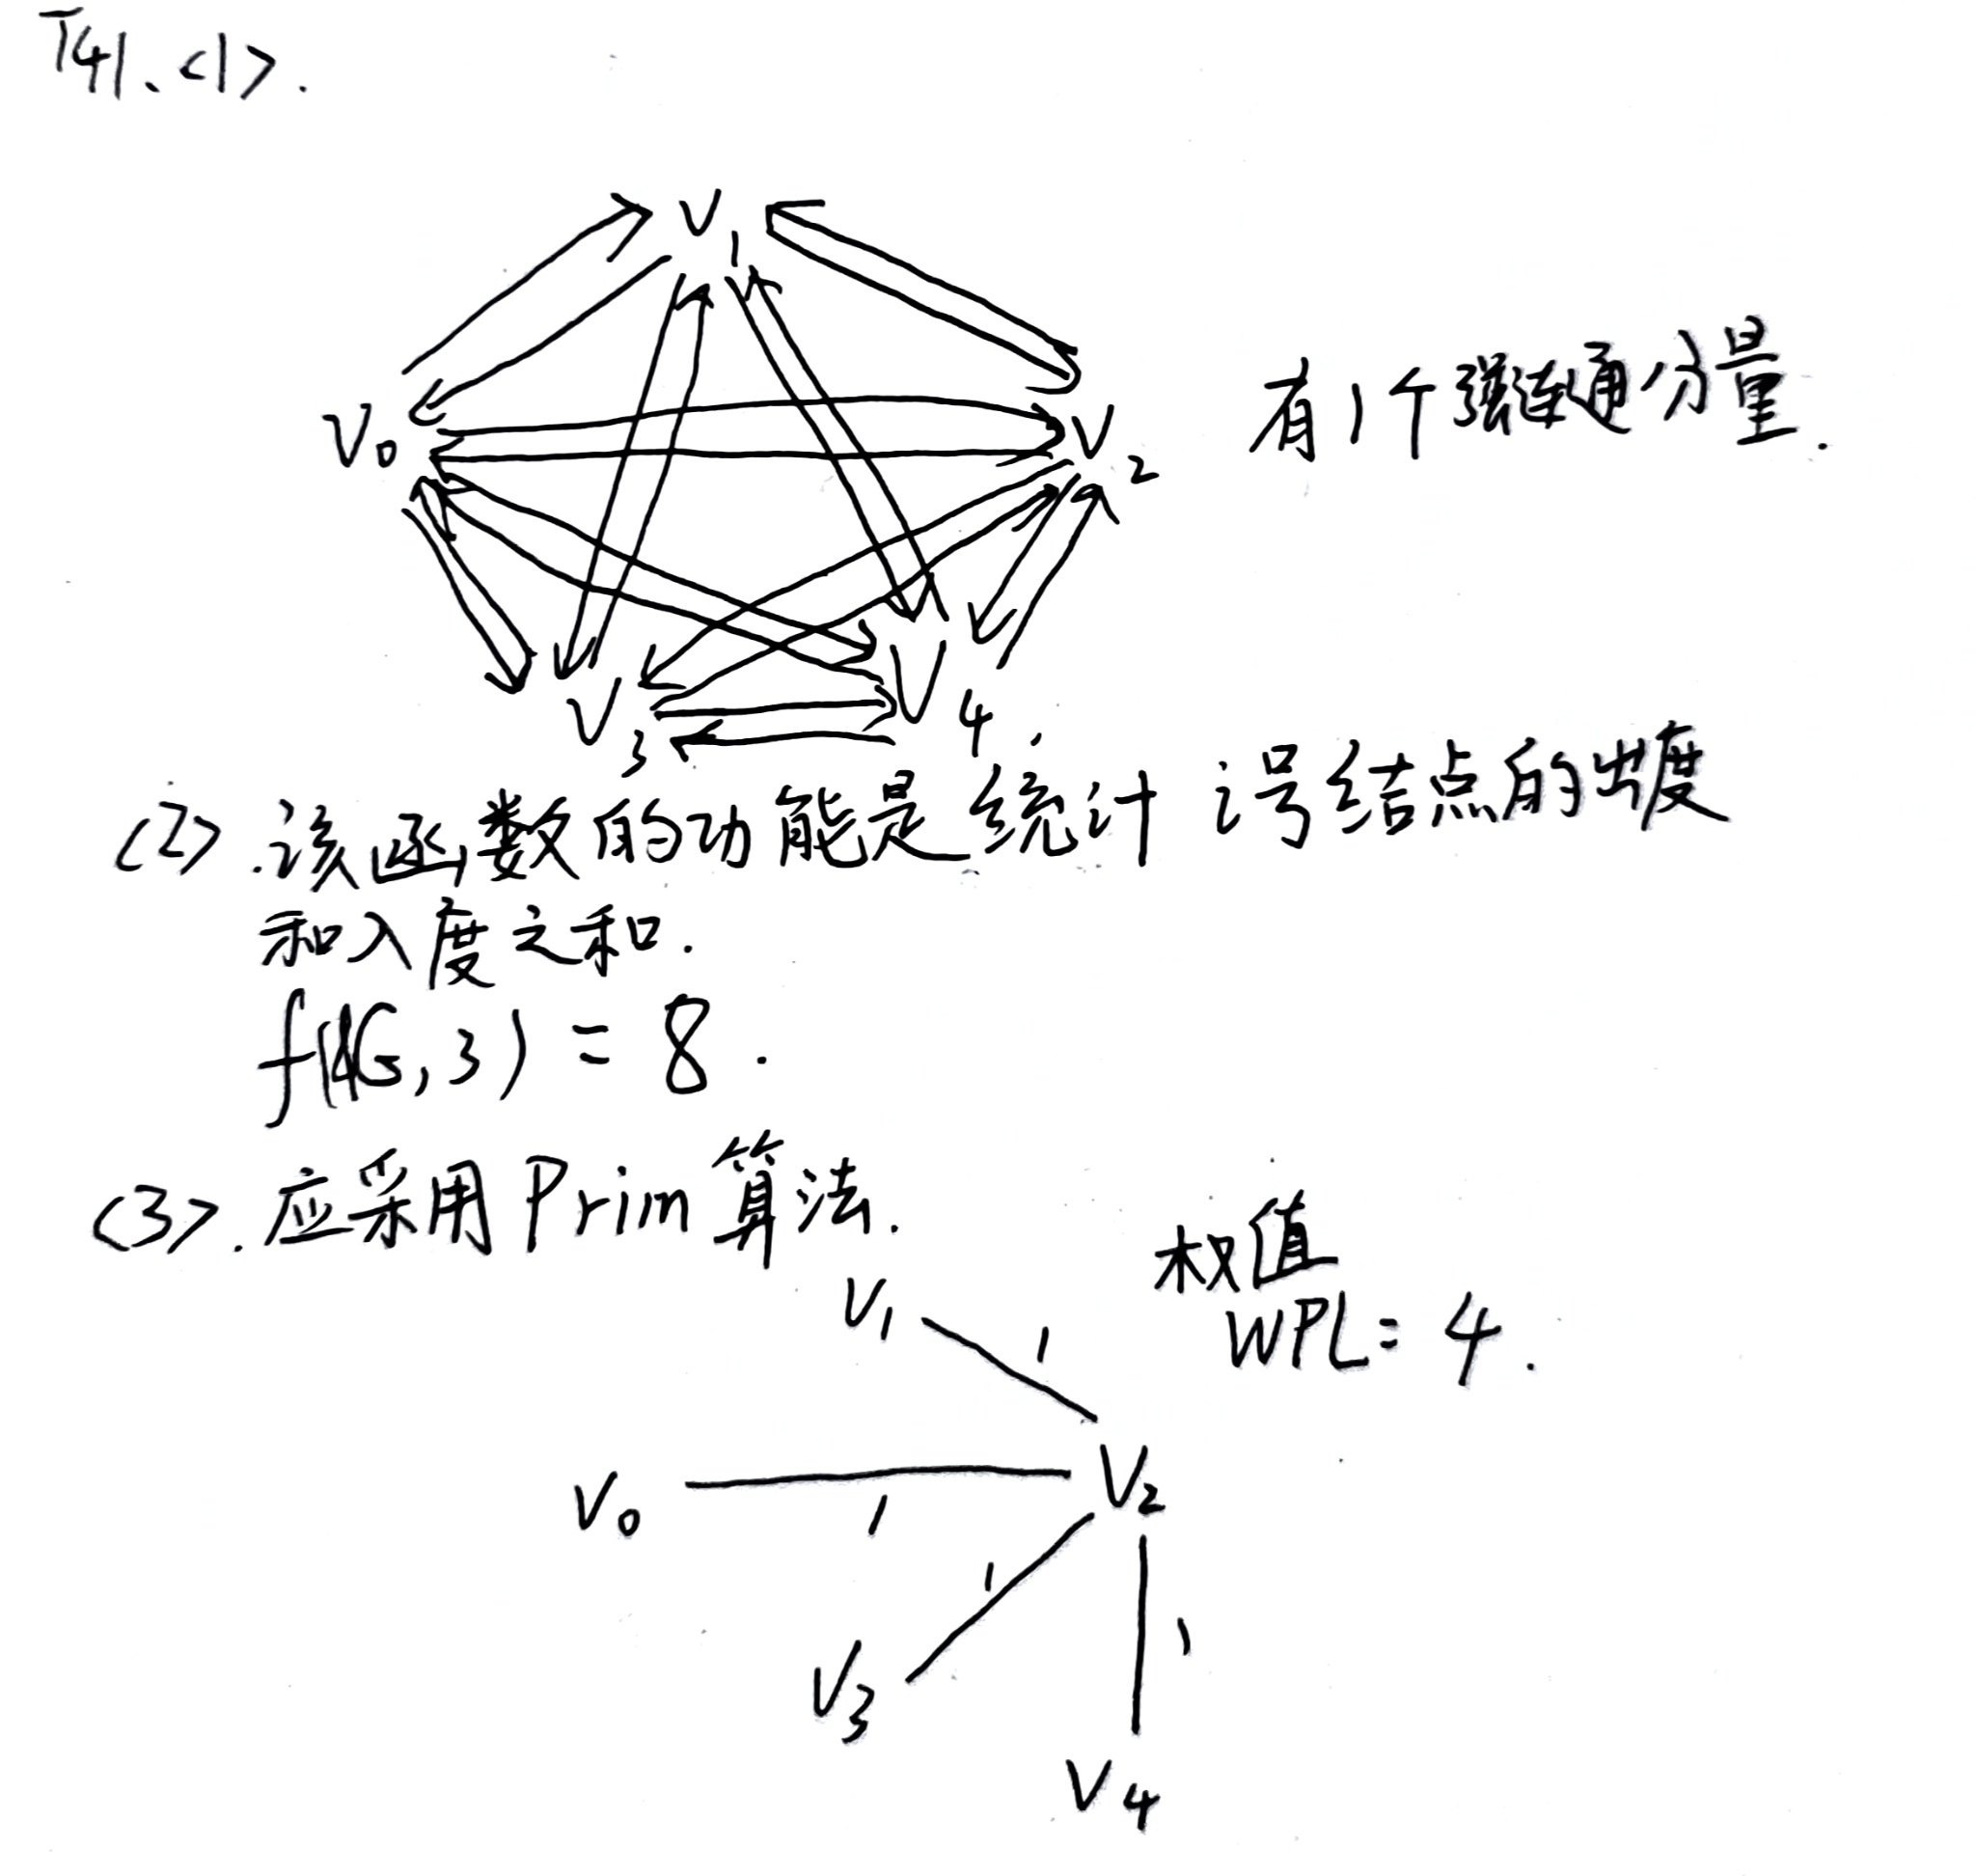 T41、<1>.
V1
V0
V2
有1个强连通分量.
V3
V4.
<2>.该函数的功能是统计 i号结点的出度
和入度之和.
f(AG,3) = 8.
<3>.应采用Prim算法.
权值
WPL=4.
V1
1
V0
1
V2
1
1
V3
V4